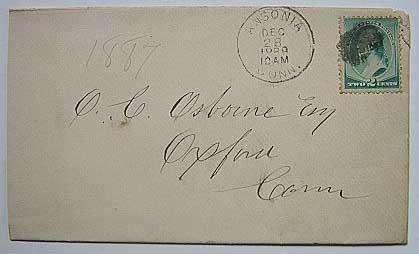 1887
ANSONIA
DEC
28
10AM
CONN.
TWO 2 CENTS
O. C. Osborne Esq
Oxford
Conn